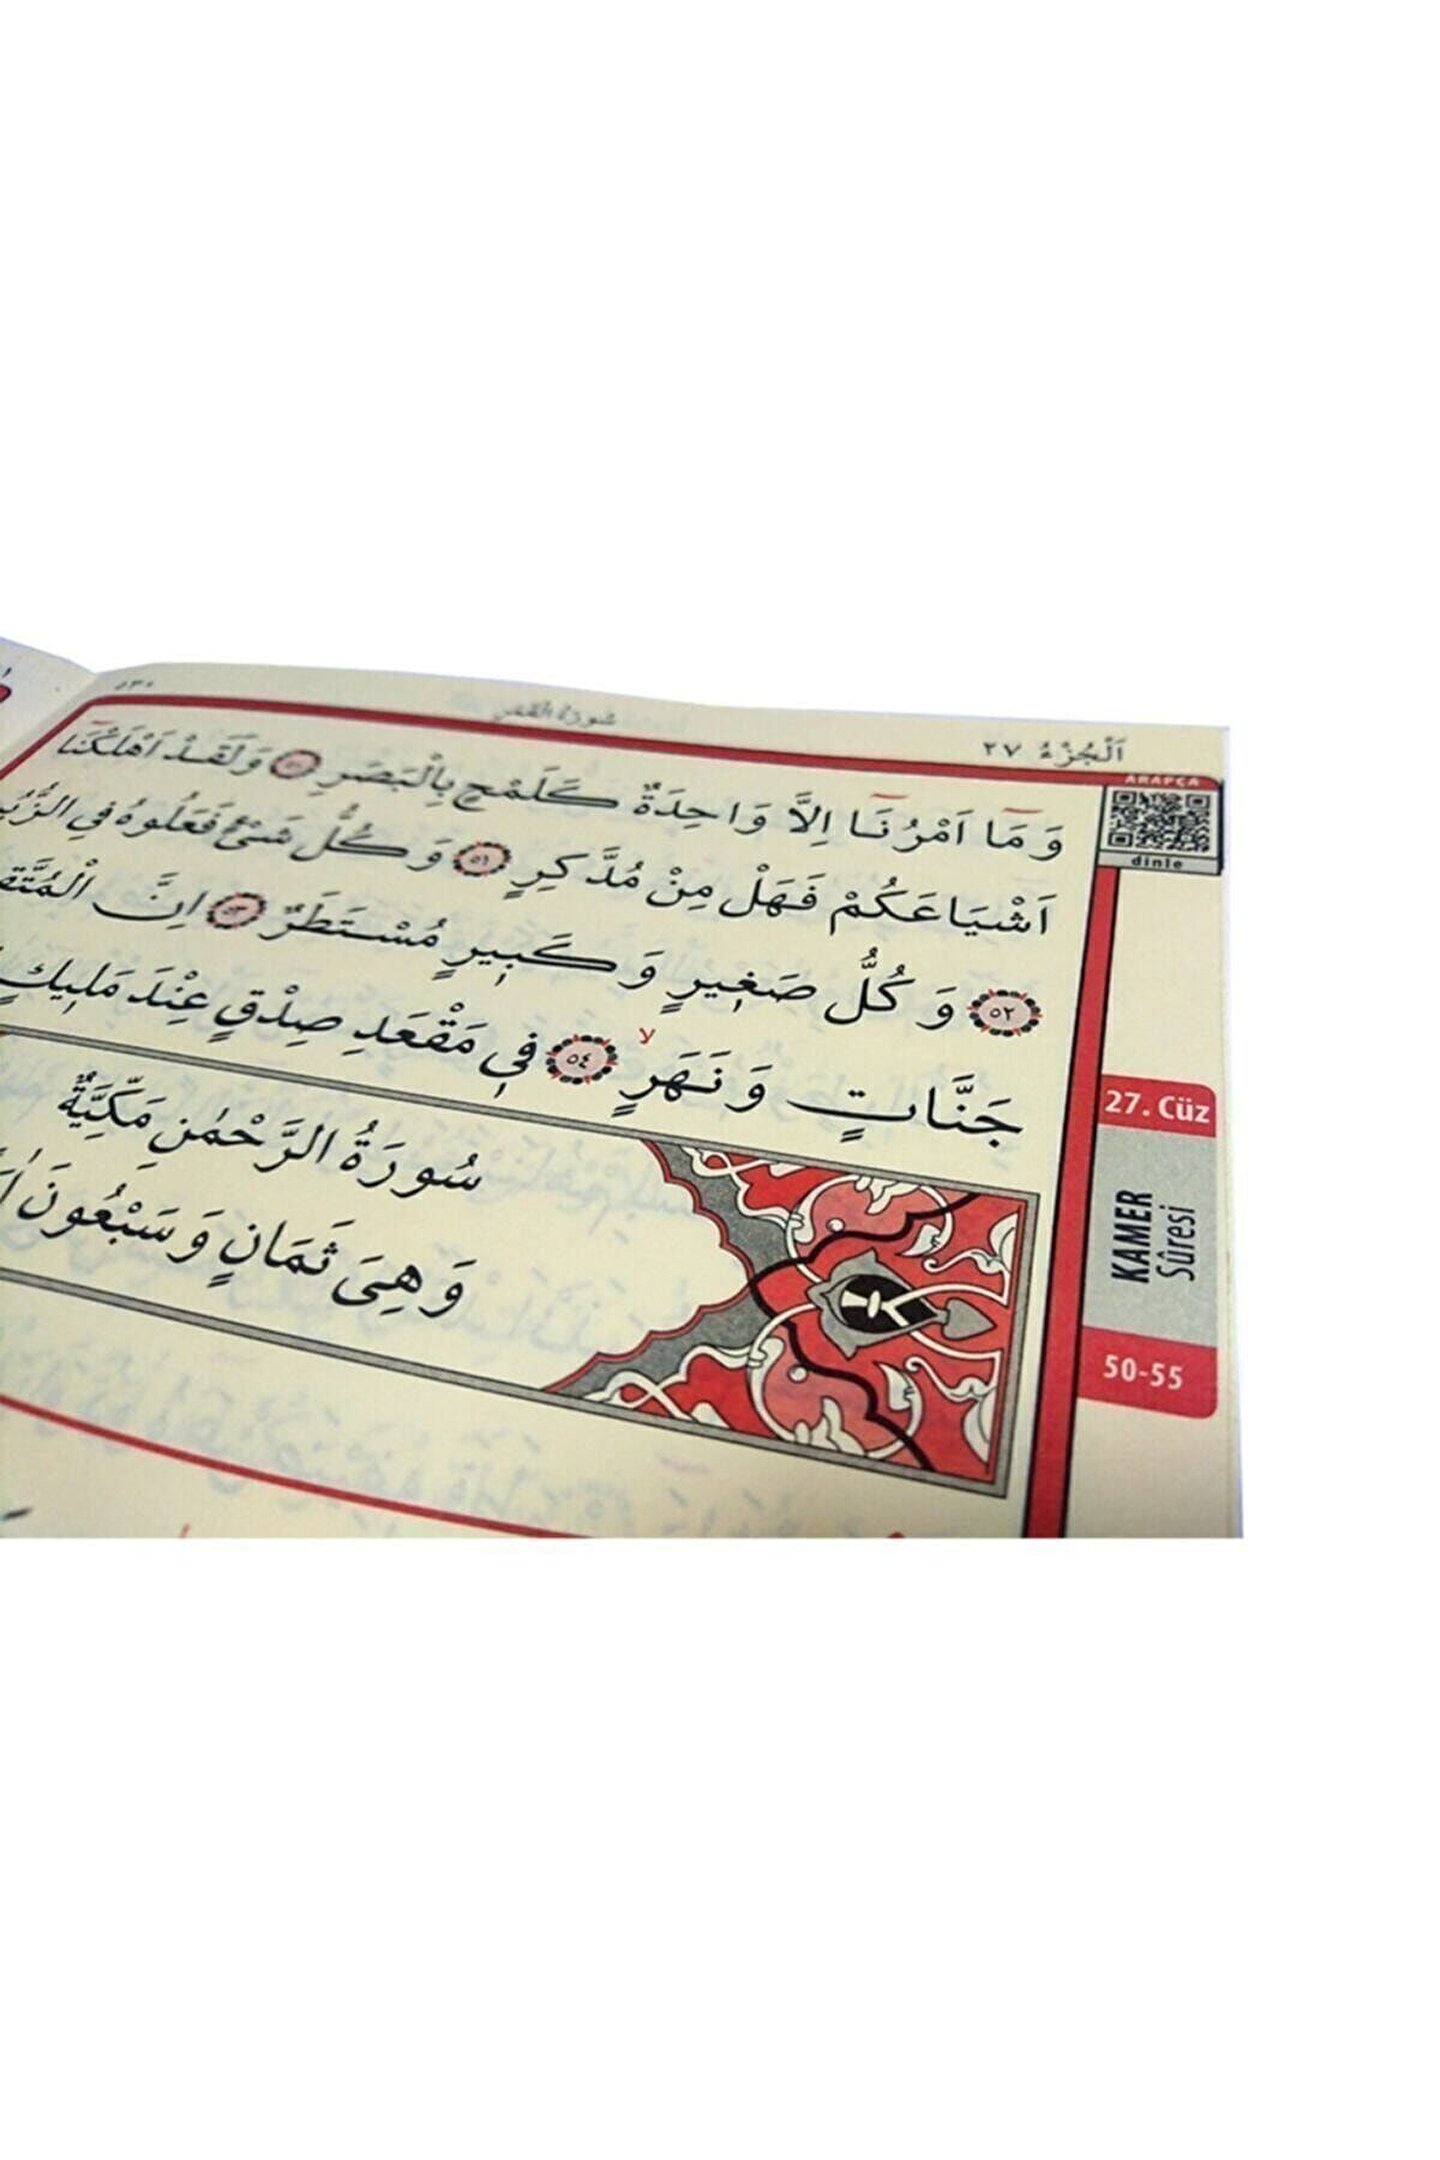 اَلْجُزْءُ ٢٧ سُورَةُ الْقَمَرِ ٥٣٠
وَمَٓا اَمْرُنَٓا اِلَّا وَاحِدَةٌ كَلَمْحٍ بِالْبَصَرِ ٥٠ وَلَقَدْ اَهْلَكْنَٓا
اَشْيَاعَكُمْ فَهَلْ مِنْ مُدَّكِرٍ ٥١ وَكُلُّ شَيْءٍ فَعَلُوهُ فِي
٥٢ وَكُلُّ صَغِيرٍ وَكَبِيرٍ مُسْتَطَرٌ ٥٣ اِنَّ
جَنَّاتٍ وَنَهَرٍ لا ٥٤ فِي مَقْعَدِ صِدْقٍ عِنْدَ مَلِيكٍ
سُورَةُ الرَّحْمٰنِ مَكِّيَّةٌ
وَهِيَ ثَمَانٍ وَسَبْعُونَ
ARAPÇA
dinle
27. Cüz
KAMER
Sûresi
50-55